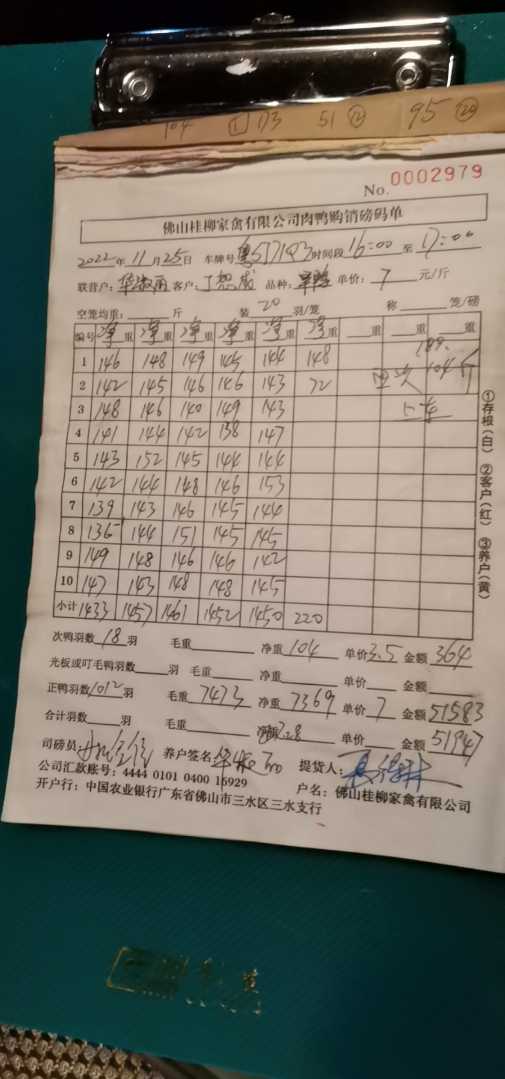 104 ① 173 51 ⑫ 95 ⑳
No. 0002979
佛山桂柳家禽有限公司肉鸭购销磅码单
2022年11月25日 车牌号 时间段16:00至17:00
联营户: 客户: 品种: 单价:7元/斤
空笼均重: 斤 装20羽/笼 称 笼/磅
编号 净重 净重 净重 净重 净重 净重 重 重 重
1 146 148 149 145 144 148
2 142 145 146 146 143 72 104斤
3 148 146 140 149 143
4 141 144 142 138 147
5 143 152 145 144 144
6 142 144 148 146 153
7 139 143 146 145 144
8 136 144 151 145 145
9 149 148 146 146 142
10 147 143 148 148 145
小计 1433 1457 1461 1452 1450 220
次鸭羽数18羽 毛重 净重104 单价3.5 金额364
光板或叮毛鸭羽数 羽 毛重 净重 单价 金额
正鸭羽数1012羽 毛重7473 净重7369 单价7 金额51583
合计羽数 羽 毛重 净重7.28 单价 金额51947
司磅员 养户签名 提货人:
公司汇款账号:4444 0101 0400 15929 户名:佛山桂柳家禽有限公司
开户行:中国农业银行广东省佛山市三水区三水支行
①存根(白) ②客户(红) ③养户(黄)